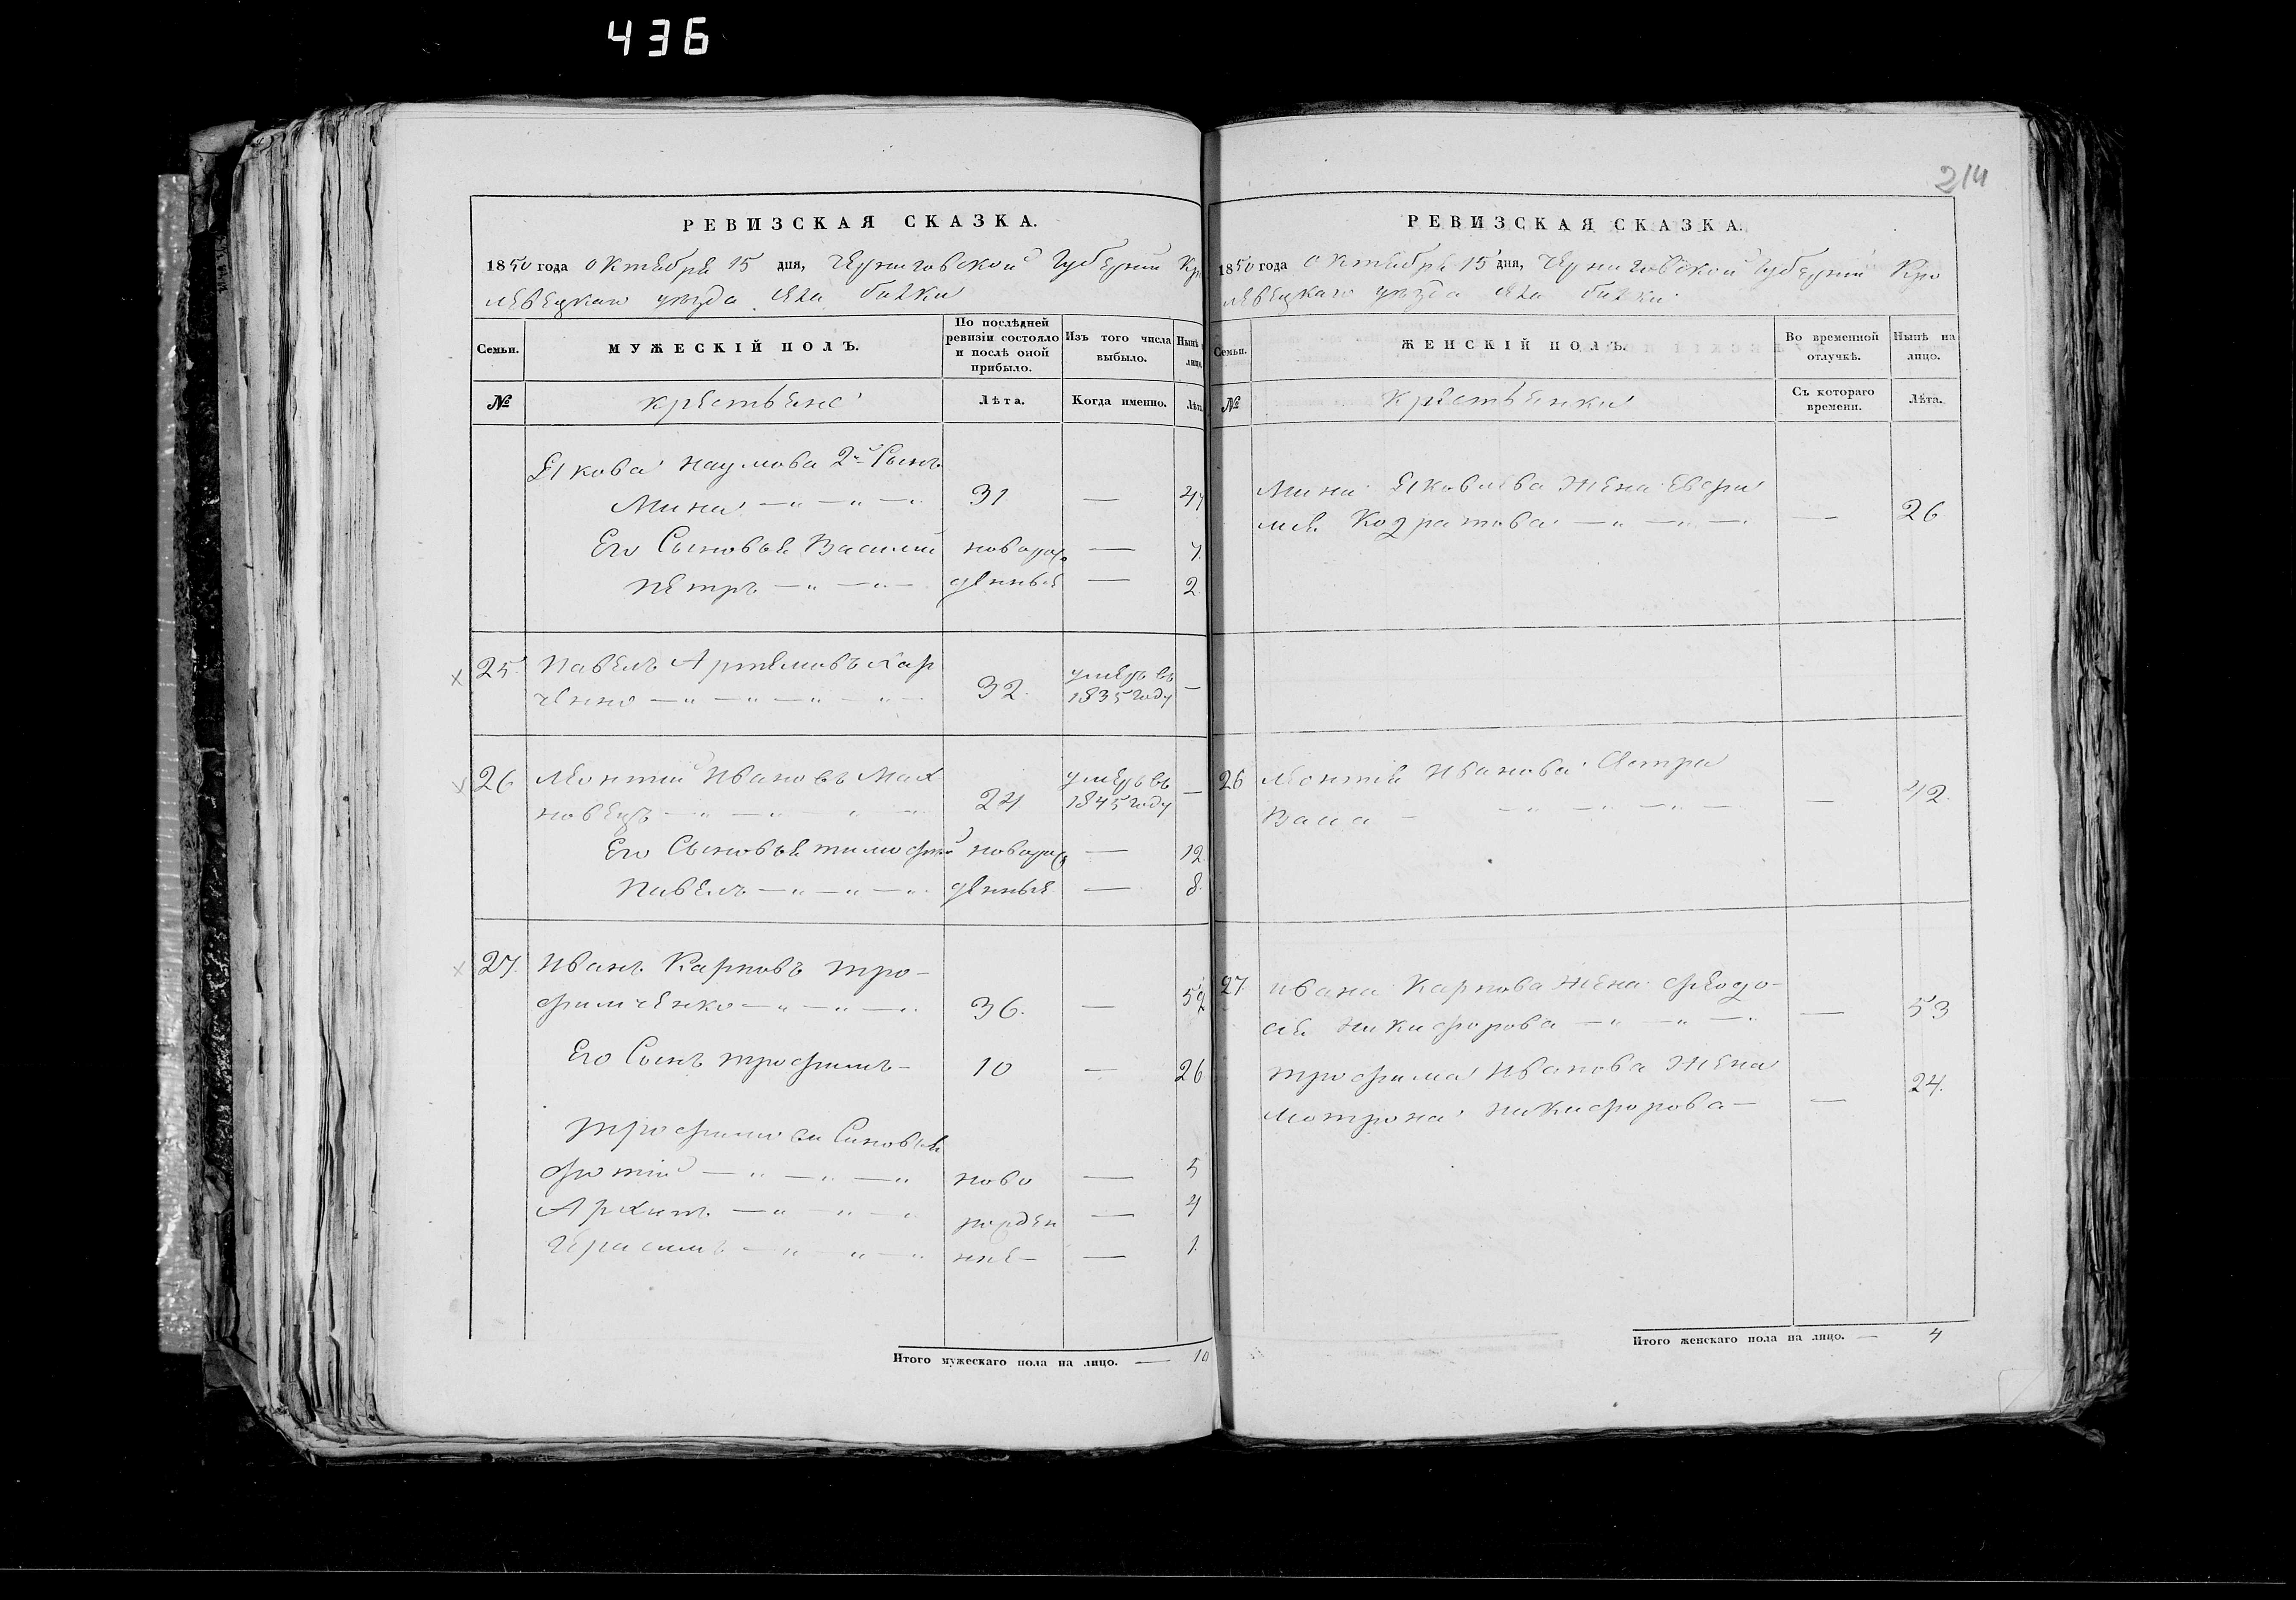 436
214
РЕВИЗСКАЯ СКАЗКА.
1850 года Октября 15 дня, Черниговской Губернии Кро
левецкаго уезда села
Семьи. МУЖЕСКІЙ ПОЛЪ. По послѣдней ревизіи состояло и послѣ оной прибыло. Изъ того числа выбыло. Нынѣ лицо
№ крестьяне Лѣта. Когда именно. Лѣта
Якова Наумова 2й Сынъ
Мина — 31 — 47
Его Сыновья Василий новорож — 7.
Петръ — денныя — 2
25. Павелъ Артемовъ Хар
ченко — 32. умеръ въ 1835 году —
26 Леонтий Ивановъ Мах
новецъ — 24 умеръ въ 1845 году —
Его Сыновья тимофей новорож — 12.
Павелъ — денныя — 8.
27. Иванъ Карповъ тро-
фимченко — 36. — 52
Его Сынъ трофимъ - 10 — 26
трофимовы Синовья
фотий — ново — 5
Архипъ — рожден — 4
Герасимъ — ние — 1.
Итого мужескаго пола на лицо. — 10
РЕВИЗСКАЯ СКАЗКА.
1850 года Октября 15 дня, Черниговской Губернии Кро
левецкаго уезда села
Семьи. ЖЕНСКІЙ ПОЛЪ. Во временной отлучкѣ. Нынѣ на лицо.
№ крестьянки Съ котораго времени. Лѣта.
Мины Яковлева Жена Евфи
мия Кодратова — — 26
26 Леонтия Иванова
— 42.
27 ивана Карпова Жена феодо-
сия Никифорова — — 53
трофима Иванова Жена
мотрона Никифорова — — 24.
Итого женскаго пола на лицо. — 4